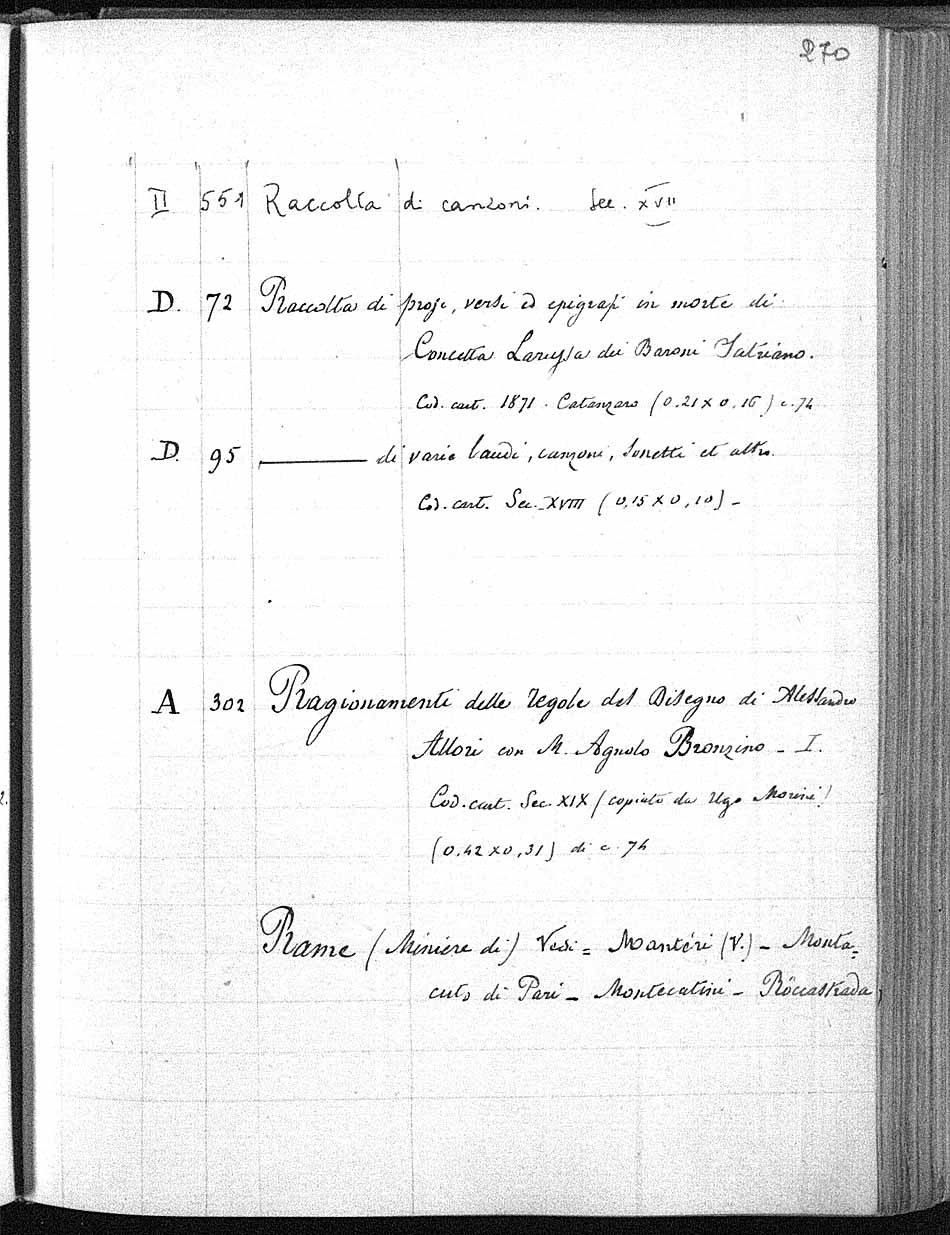 270
II 551 Raccolta di canzoni. Sec. XVII
D. 72 Raccolta di prose, versi ed epigrafi in morte di
Concetta Laruffa dei Baroni Satriano.
Cod. cart. 1871. Catanzaro (0.21 x 0.16) c. 74
D. 95 ———— di varie laudi, canzoni, sonetti et altro.
Cod. cart. Sec. XVIII (0,15 x 0,10) -
A 302 Ragionamenti delle regole del Disegno di Alessandro
Allori con M. Agnolo Bronzino - I.
Cod. cart. Sec. XIX (copiato da Ugo Morini)
(0.42 x 0,31) di c. 74
Rame (Miniere di) Vedi = Montieri (V.) - Monta=
cuto di Pari - Montecatini - Roccastrada